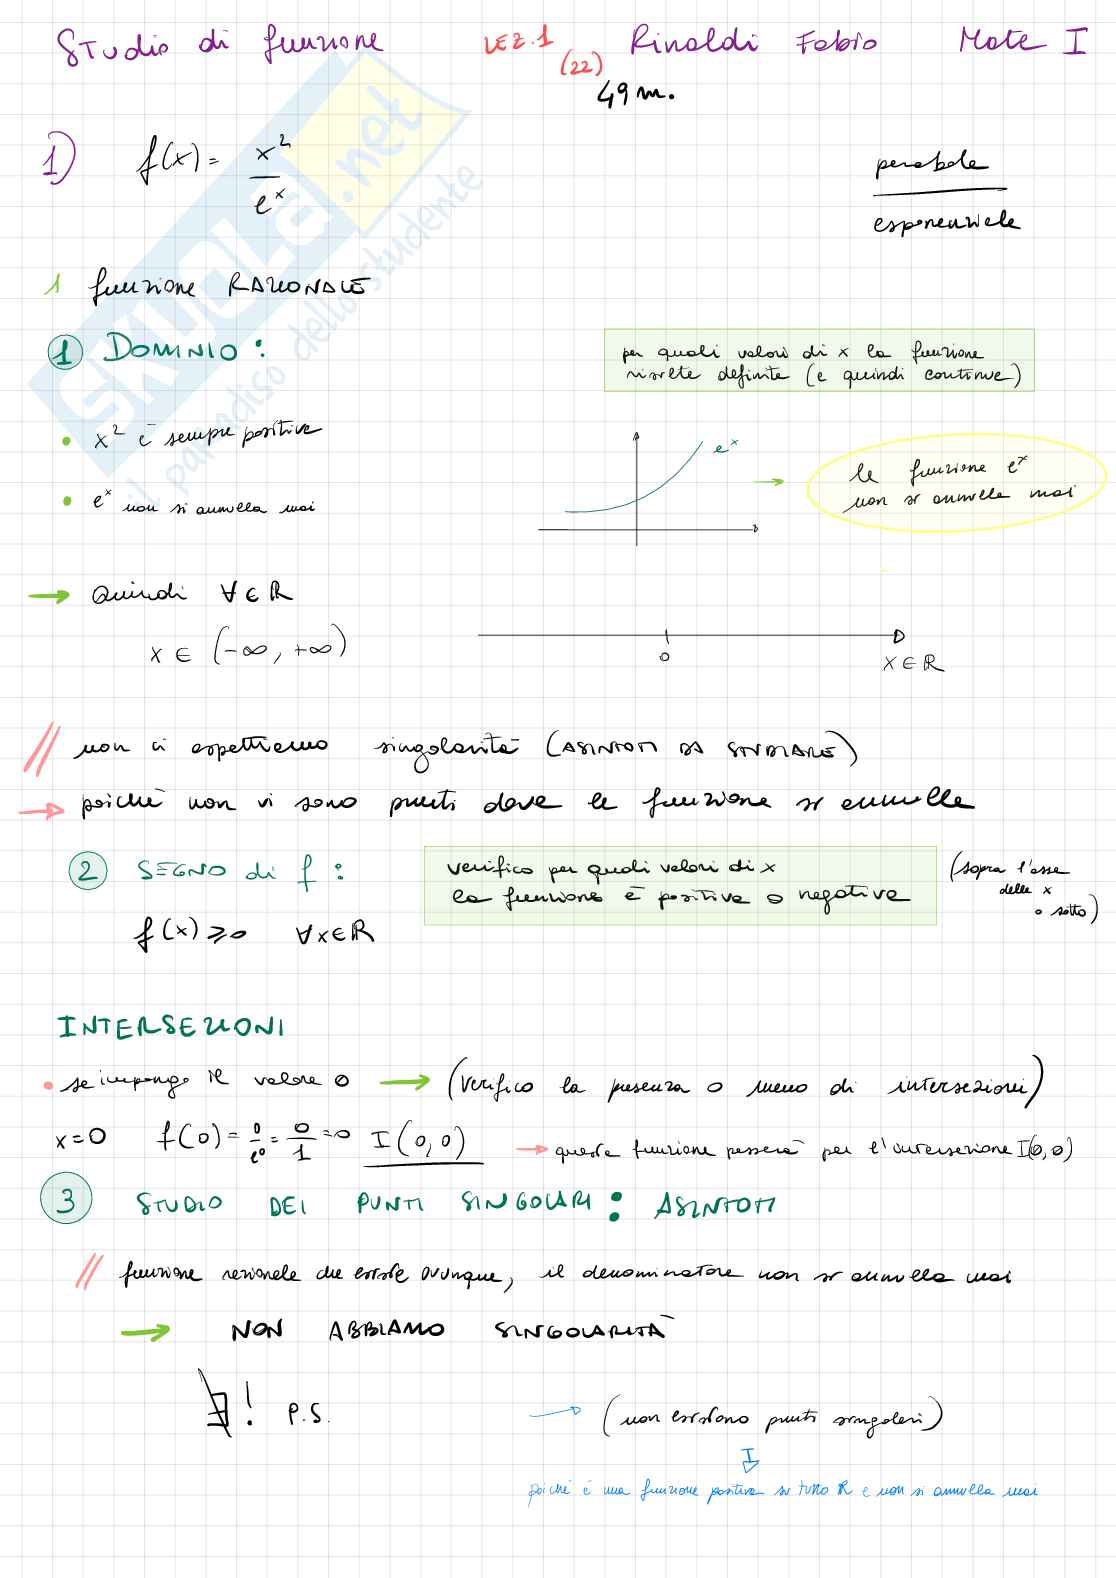 Studio di funzione LEZ.1 (22) Rinaldi Fabio Mate I
49 m.
1) f(x) = x² / eˣ
parabola / esponenziale
SKUOLA.net
al paradiso dello studente
1 funzione RAZIONALE
1 DOMINIO :
per quali valori di x la funzione
risulta definita (e quindi continua)
• x² è sempre positiva
• eˣ non si annulla mai
eˣ
la funzione eˣ
non si annulla mai
→ Quindi ∀ ∈ ℝ
x ∈ (-∞, +∞)
0
x ∈ ℝ
// non ci aspettiamo singolarità (ASINTOTI DA STUDIARE)
→ poiché non vi sono punti dove la funzione si annulla
2 SEGNO di f :
verifico per quali valori di x
la funzione è positiva o negativa
(sopra l'asse
delle x
o sotto)
f(x) ⩾ 0 ∀x∈ℝ
INTERSEZIONI
• se impongo il valore 0 → (verifico la presenza o meno di intersezioni)
x=0 f(0) = 0/e⁰ = 0/1 = 0 I(0,0) → questa funzione passerà per l'intersezione I(0,0)
3 STUDIO DEI PUNTI SINGOLARI : ASINTOTI
// funzione razionale che esiste ovunque, il denominatore non si annulla mai
→ NON ABBIAMO SINGOLARITÀ
∄! P.S. → (non esistono punti singolari)
poiché è una funzione positiva su tutto ℝ e non si annulla mai